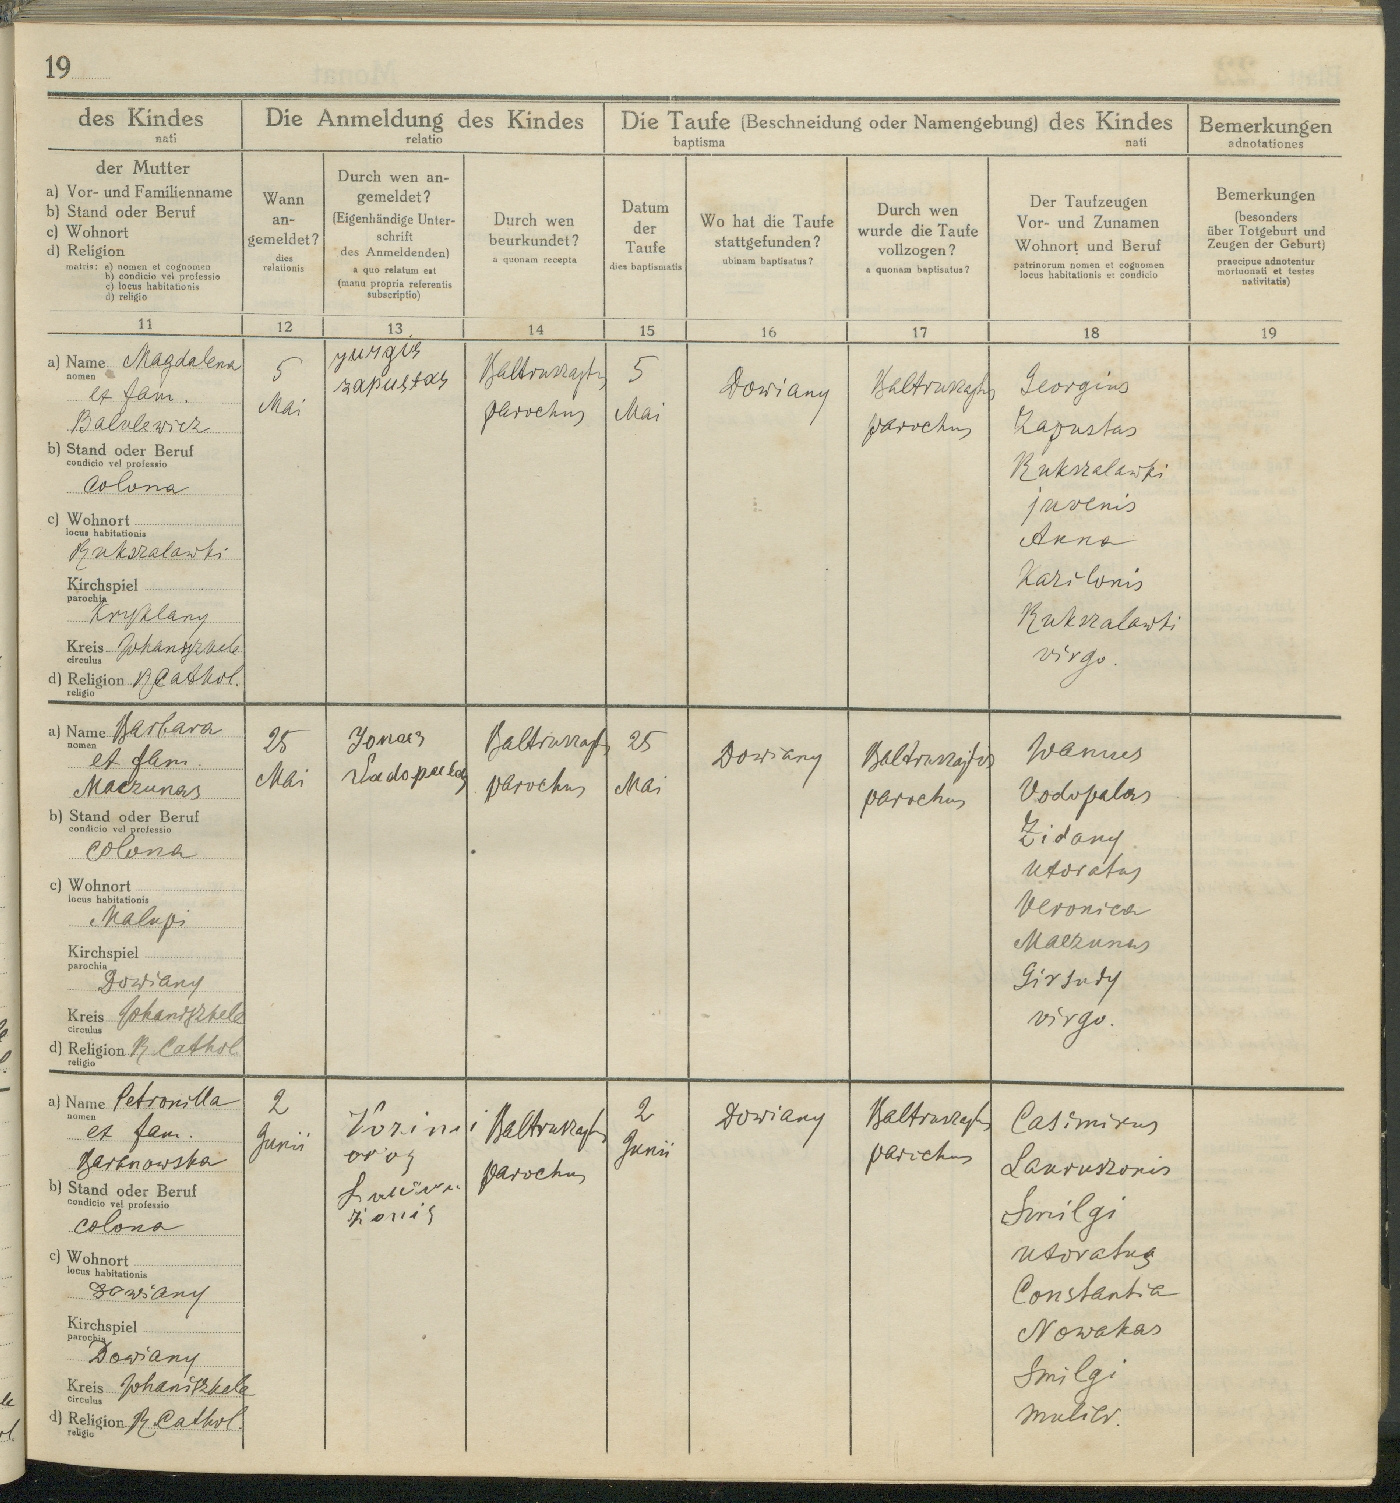 19
des Kindes
nati
Die Anmeldung des Kindes
relatio
Die Taufe (Beschneidung oder Namengebung) des Kindes
baptisma nati
Bemerkungen
adnotationes
der Mutter
a) Vor- und Familienname
b) Stand oder Beruf
c) Wohnort
d) Religion
matris: a) nomen et cognomen
b) condicio vel professio
c) locus habitationis
d) religio
Wann
an-
gemeldet?
dies
relationis
Durch wen an-
gemeldet?
(Eigenhändige Unter-
schrift
des Anmeldenden)
a quo relatum est
(manu propria referentis
subscriptio)
Durch wen
beurkundet?
a quonam recepta
Datum
der
Taufe
dies baptismatis
Wo hat die Taufe
stattgefunden?
ubinam baptisatus?
Durch wen
wurde die Taufe
vollzogen?
a quonam baptisatus?
Der Taufzeugen
Vor- und Zunamen
Wohnort und Beruf
patrinorum nomen et cognomen
locus habitationis et condicio
Bemerkungen
(besonders
über Totgeburt und
Zeugen der Geburt)
praecipue adnotentur
mortuonati et testes
nativitatis)
11 12 13 14 15 16 17 18 19
a) Name Magdalena
nomen
et fam.
Balulewicz
b) Stand oder Beruf
condicio vel professio
colona
c) Wohnort
locus habitationis
Rukszalawki
Kirchspiel
parochia
Kryklany
Kreis Johaniszkele
circulus
d) Religion R Cathol.
religio
5
Mai
Jurgis
zapustas
Baltruszajtys
parochus
5
Mai
Dowiany
Baltruszajtys
parochus
Georgius
Zapustas
Rukszalawki
juvenis
Anna
Kazilonis
Rukszalawki
virgo.
a) Name Barbara
nomen
et fam.
Maczunas
b) Stand oder Beruf
condicio vel professio
colona
c) Wohnort
locus habitationis
Malupi
Kirchspiel
parochia
Dowiany
Kreis Johaniszkele
circulus
d) Religion R Cathol.
religio
25
Mai
Jonas
Baltruszajtys
parochus
25
Mai
Dowiany
Baltruszajtis
parochus
Vodopalas
Zidany
uxoratus
Veronica
Maczunas
Girsudy
virgo.
a) Name Petronilla
nomen
et fam.
Baranowska
b) Stand oder Beruf
condicio vel professio
colona
c) Wohnort
locus habitationis
Dowiany
Kirchspiel
parochia
Dowiany
Kreis Johaniszkele
circulus
d) Religion R. Cathol.
religio
2
Junii
Baltruszajtys
parochus
2
Junii
Dowiany
Baltruszajtys
parochus
Casimirus
Lauruszonis
Smilgi
uxoratus
Constantia
Nowakas
Smilgi
mulier.